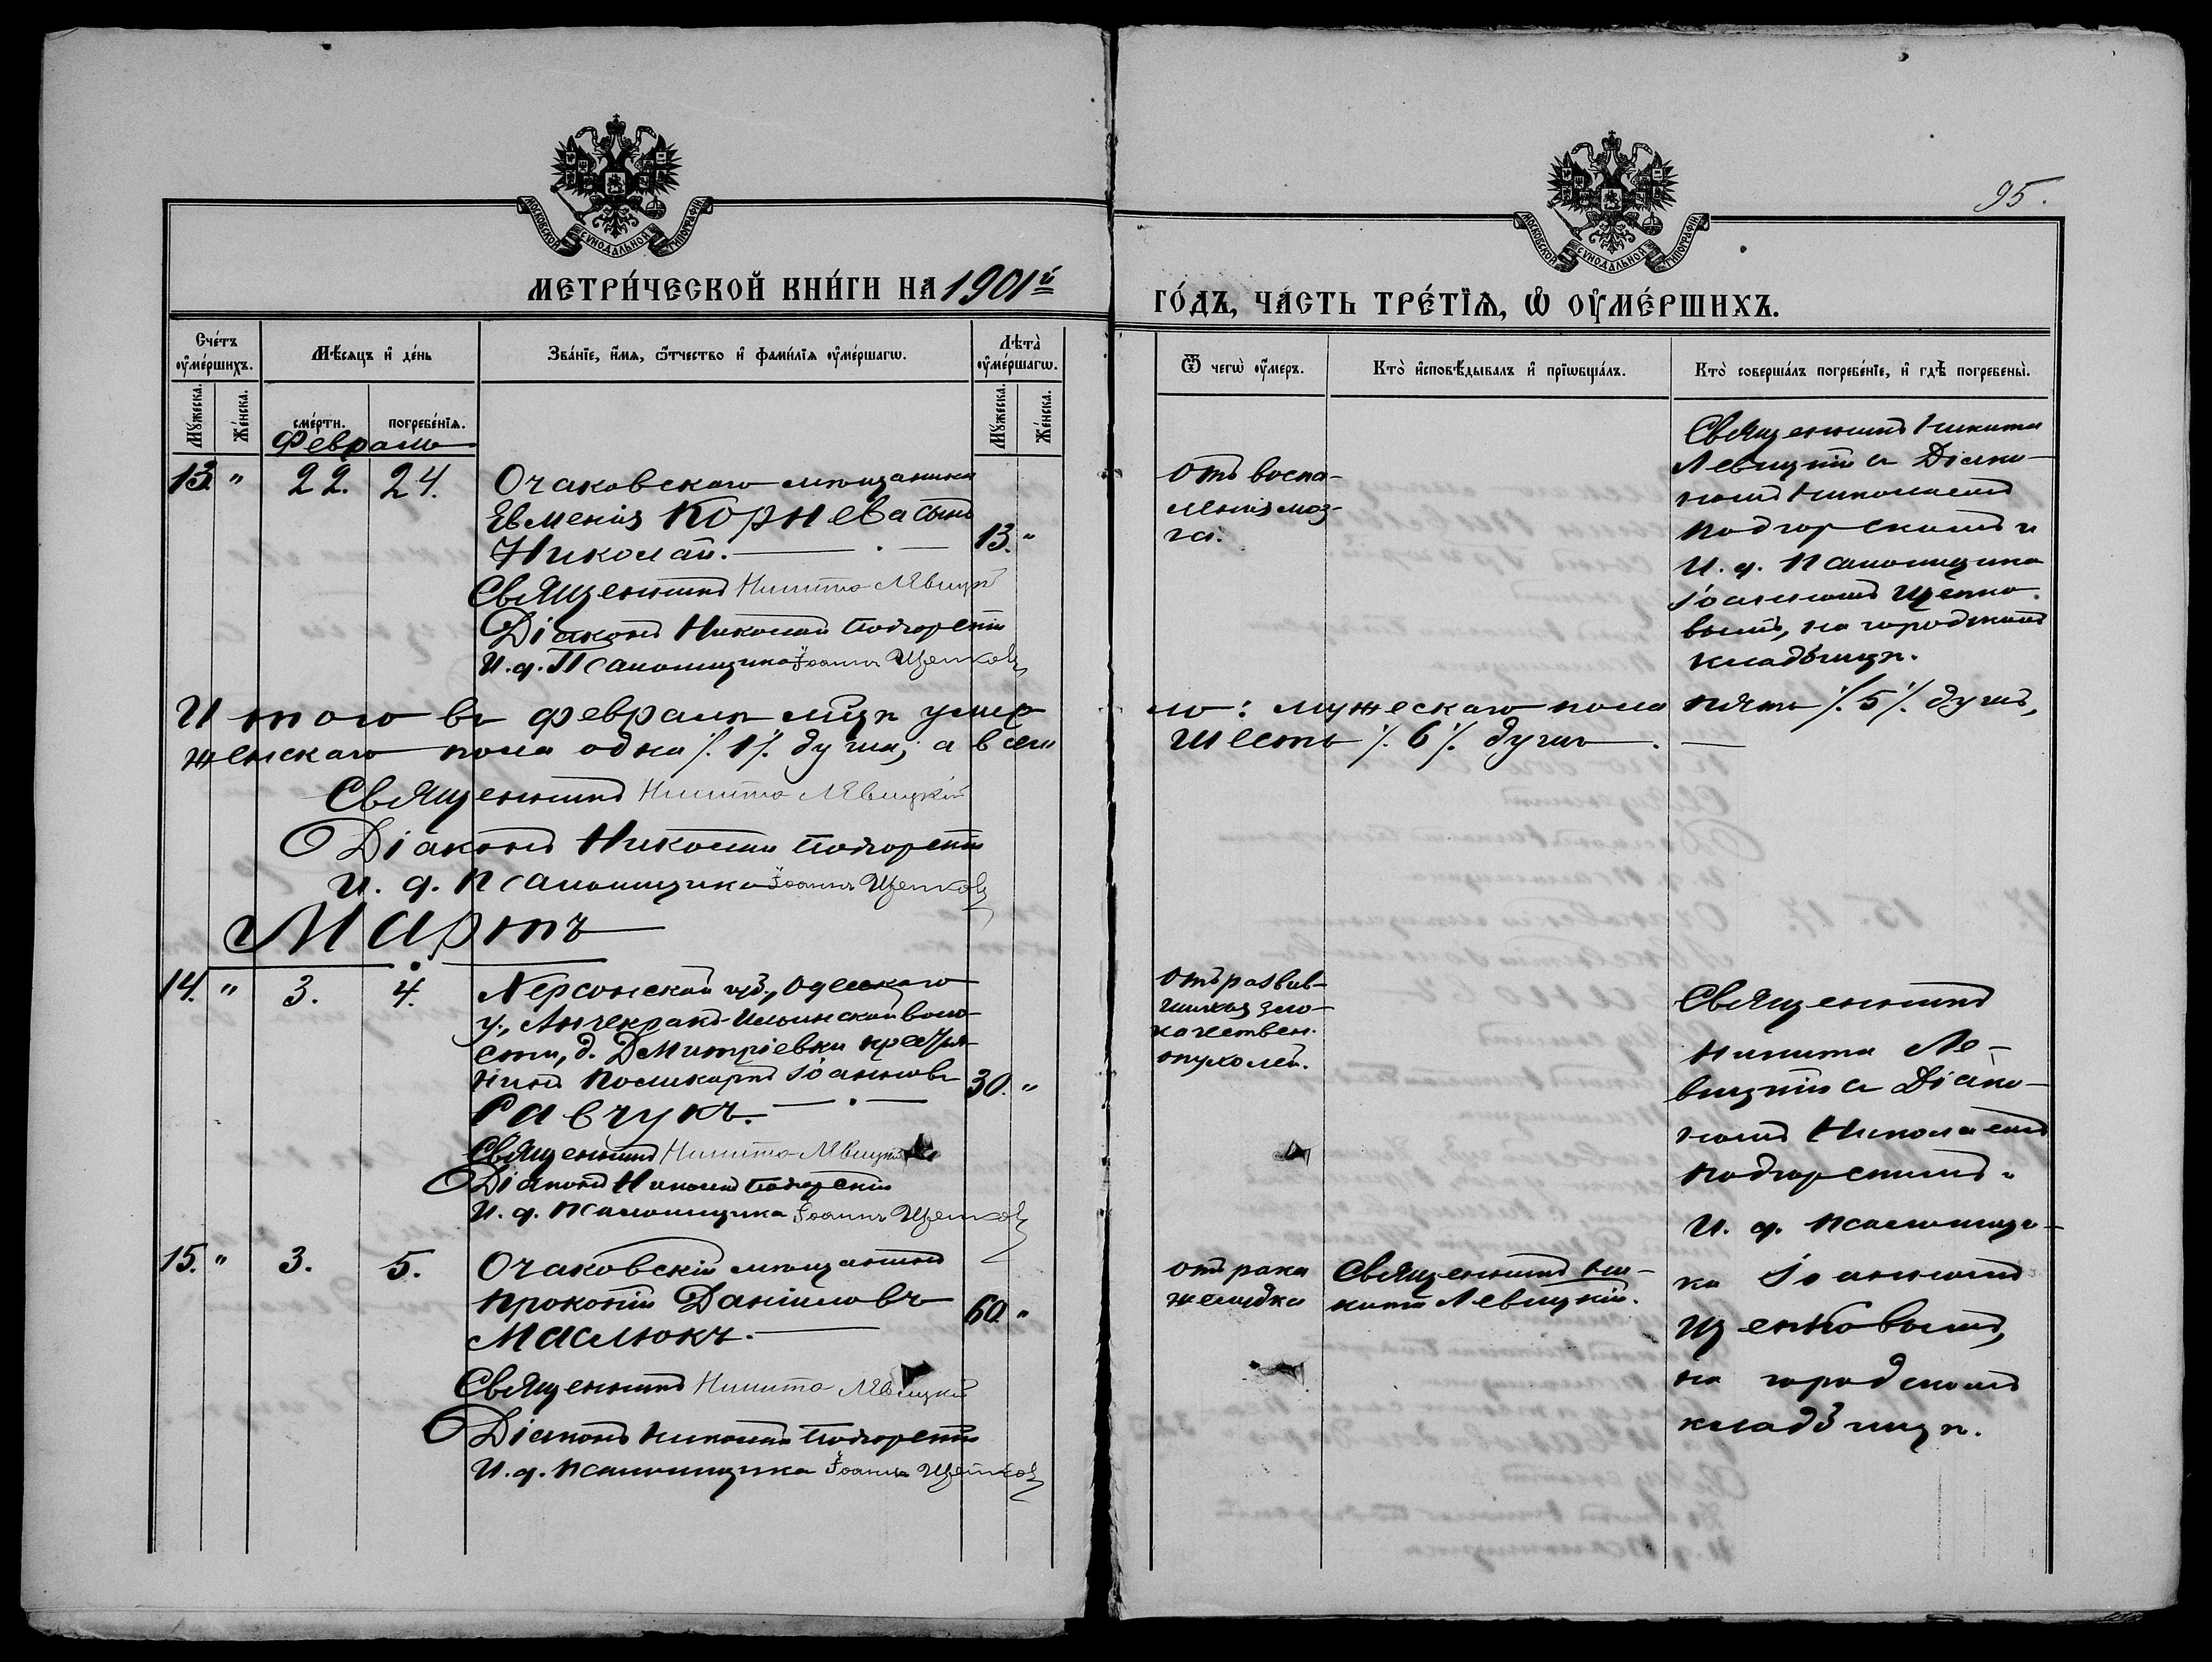 95.
МОСКОВСКОЙ СѴНОДАЛЬНОЙ ТИПОГРАФІИ
МОСКОВСКОЙ СѴНОДАЛЬНОЙ ТИПОГРАФІИ
МЕТРИ́ЧЕСКОЙ КНИ́ГИ НА 1901й
ГО́ДЪ, ЧА́СТЬ ТРЕ́ТЇѦ, Ѡ҆ ОУ҆МЕ́РШИХЪ.
Сче́тъ оу҆ме́ршихъ.
Мѣ́сяцъ и҆ де́нь
Зва́нїе, и҆́мѧ, ѻ҆́тчество и҆ фами́лїѧ оу҆ме́ршагѡ.
Лѣта̀ оу҆ме́ршагѡ.
Ѿ чегѡ̀ оу҆́меръ.
Кто̀ и҆сповѣ́дывалъ и҆ прїѡбща́лъ.
Кто̀ соверша́лъ погребе́нїе, и҆ гдѣ̀ погребены̀.
Мꙋ́жеска.
Же́нска.
сме́рти.
погребе́нїѧ.
Мꙋ́жеска.
Же́нска.
Февраль
13. " 22. 24.
Очаковскаго мѣщанина
Евменія Корнева сынъ
Николай.
13. "
Священникъ Никита Левицкій
Діаконъ Николай Подгорскій
И. д. Псаломщика Іоаннъ Щепковъ
отъ воспа-
ленія моз-
га.
Священникъ Никита
Левицкій съ Діако-
номъ Николаемъ
Подгорскимъ и
И. д. Псаломщика
Іоанномъ Щепко-
вымъ, на городскомъ
кладбищѣ.
Итого въ февралѣ мцѣ умер-
ло: мужескаго пола пять /.5/. душъ,
женскаго пола одна /.1/. душа; а всего
шесть /.6/. душъ.
Священникъ Никита Левицкій
Діаконъ Николай Подгорскій
И. д. Псаломщика Іоаннъ Щепковъ
Мартъ
14. " 3. 4.
Херсонской губ., Одесскаго
у., Анчекракъ-Ильинской воло-
сти, д. Дмитріевки крестья-
нинъ Поликарпъ Іоанновъ
Савчукъ.
30. "
Священникъ Никита Левицкій
Діаконъ Николай Подгорскій
И. д. Псаломщика Іоаннъ Щепковъ
отъ развив-
шихся зло-
качествен.
опухолей.
Священникъ
Никита Ле-
вицкій съ Діако-
номъ Николаемъ
Подгорскимъ и
И. д. Псаломщи-
ка Іоанномъ
Щепковымъ,
на городскомъ
кладбищѣ.
15. " 3. 5.
Очаковскій мѣщанинъ
Прокопій Даніиловъ
Маслюкъ.
60. "
Священникъ Никита Левицкій
Діаконъ Николай Подгорскій
И. д. Псаломщика Іоаннъ Щепковъ
отъ рака
желудка
Священникъ Ни-
кита Левицкій.